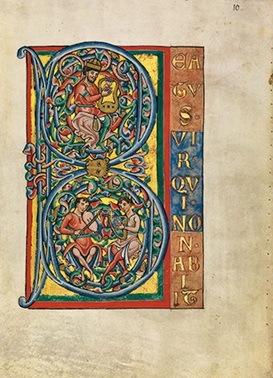 10.
B
EA
TU
S·
VI
R
QVI
NO
N·
AB
IIT